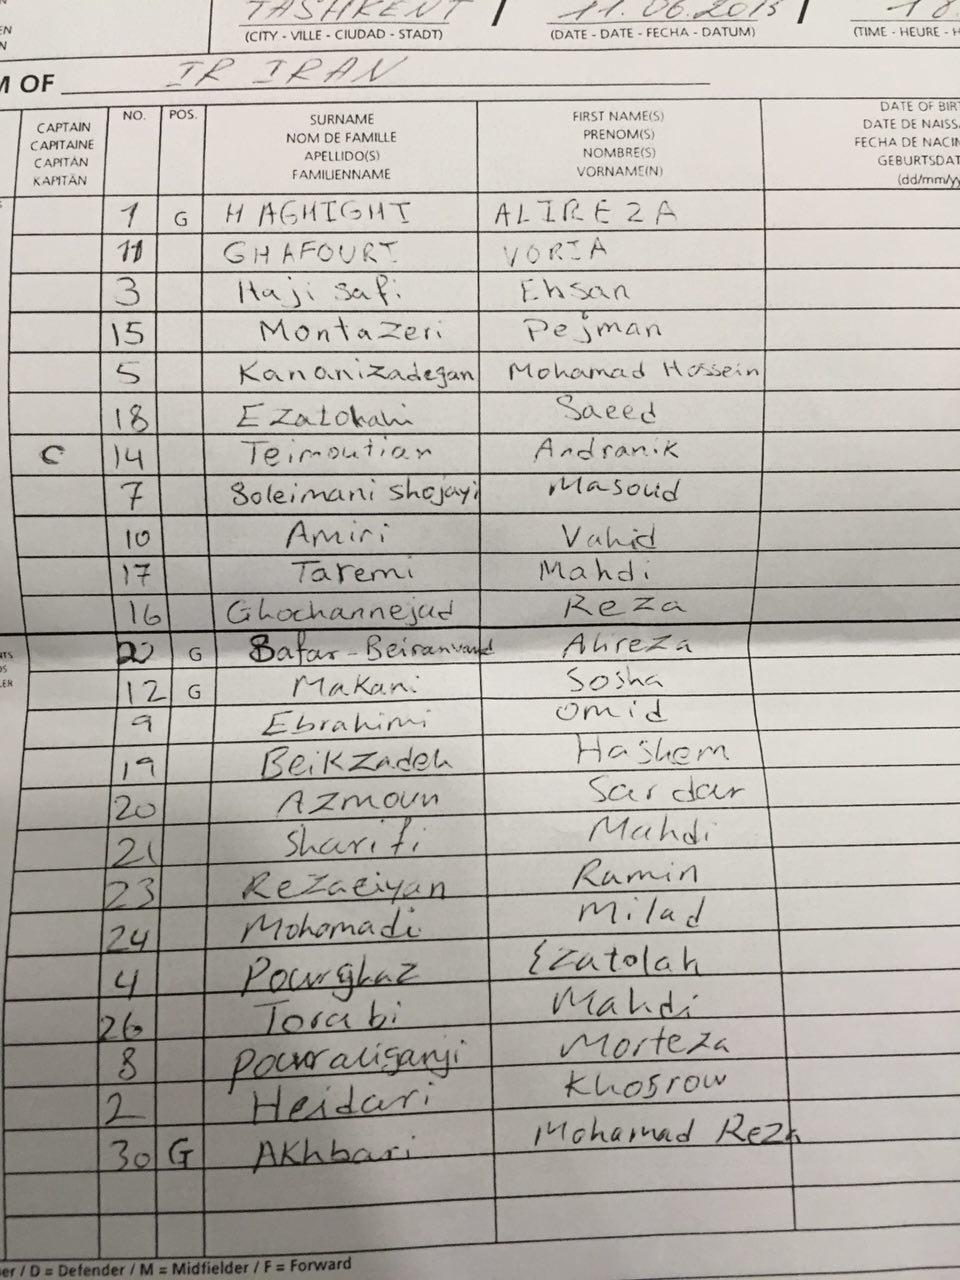 TASHKENT / 11.06.2015 / 18
(CITY - VILLE - CIUDAD - STADT) (DATE - DATE - FECHA - DATUM) (TIME - HEURE - H
M OF IR IRAN
CAPTAIN CAPITAINE CAPITÁN KAPITÄN
NO.
POS.
SURNAME NOM DE FAMILLE APELLIDO(S) FAMILIENNAME
FIRST NAME(S) PRENOM(S) NOMBRE(S) VORNAME(N)
DATE OF BIRT
DATE DE NAISSA
FECHA DE NACIM
GEBURTSDAT
(dd/mm/yy
1 G HAGHIGHI ALIREZA
11 GHAFOURI VORIA
3 Haji safi Ehsan
15 Montazeri Pejman
5 Kananizadegan Mohamad Hossein
18 Ezatolahi Saeed
C 14 Teimoutian Andranik
7 Soleimani Shojayi Masoud
10 Amiri Vahid
17 Taremi Mahdi
16 Ghochannejad Reza
G Safar-Beiranvand Alireza
12 G Makani Sosha
9 Ebrahimi Omid
19 Beikzadeh Hashem
20 Azmoun Sardar
21 Sharifi Mahdi
23 Rezaeiyan Ramin
24 Mohomadi Milad
4 Pourghaz Ezatolah
26 Torabi Mahdi
8 pouraliganji Morteza
2 Heidari Khosrow
30 G Akhbari Mohamad Reza
er / D = Defender / M = Midfielder / F = Forward